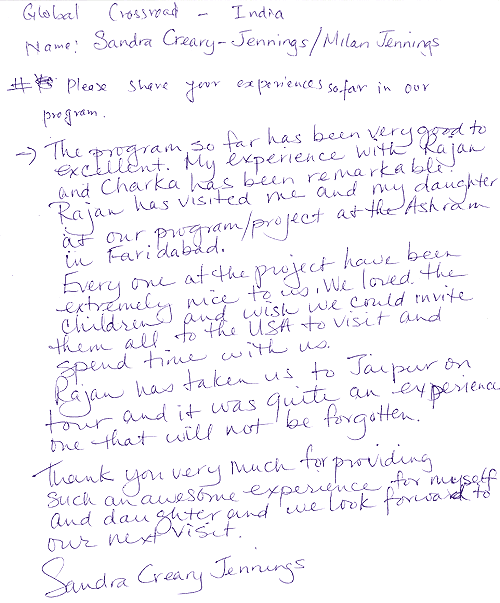 Global Crossroad - India
Name: Sandra Creary-Jennings/Milan Jennings
# Please share your experiences so far in our
program.
→ The program so far has been very good to
excellent. My experience with Rajan
and Charka has been remarkable.
Rajan has visited me and my daughter
at our program/project at the Ashram
in Faridabad.
Every one at the project have been
extremely nice to us. We loved the
children and wish we could invite
them all to the USA to visit and
spend time with us.
Rajan has taken us to Jaipur on
tour and it was quite an experience
one that will not be forgotten.
Thank you very much for providing
such an awesome experience for myself
and daughter and we look forward to
our next visit.
Sandra Creary Jennings